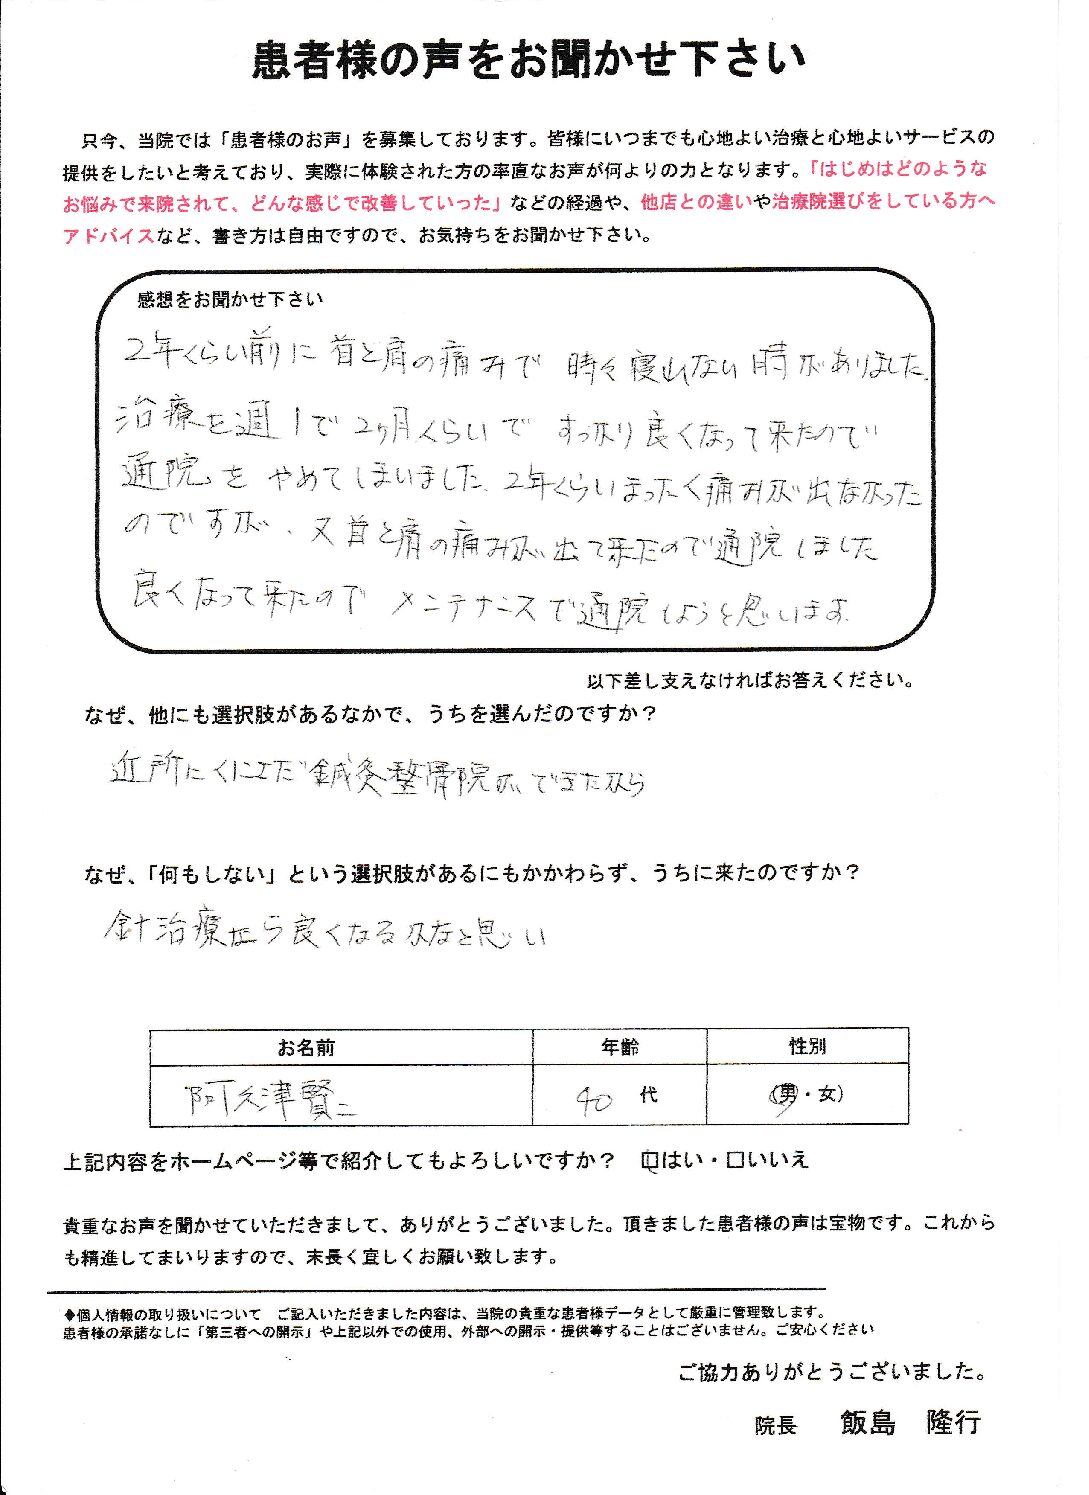 患者様の声をお聞かせ下さい
只今、当院では「患者様のお声」を募集しております。皆様にいつまでも心地よい治療と心地よいサービスの
提供をしたいと考えており、実際に体験された方の率直なお声が何よりの力となります。「はじめはどのような
お悩みで来院されて、どんな感じで改善していった」などの経過や、他店との違いや治療院選びをしている方へ
アドバイスなど、書き方は自由ですので、お気持ちをお聞かせ下さい。
感想をお聞かせ下さい
2年くらい前に首と肩の痛みで 時々寝れない時がありました。
治療を週1で2ヶ月くらいで すっかり良くなって来たので
通院をやめてしまいました。2年くらいまったく痛みが出なかった
のですが、又首と肩の痛みが出て来たので通院しました
良くなって来たので メンテナンスで通院しようと思います。
以下差し支えなければお答えください。
なぜ、他にも選択肢があるなかで、うちを選んだのですか？
近所にくによだ鍼灸整骨院が、できたから
なぜ、「何もしない」という選択肢があるにもかかわらず、うちに来たのですか？
針治療なら良くなるかなと思い
お名前 年齢 性別
阿久津賢二 40 代 (男・女)
上記内容をホームページ等で紹介してもよろしいですか？ □はい・□いいえ
貴重なお声を聞かせていただきまして、ありがとうございました。頂きました患者様の声は宝物です。これから
も精進してまいりますので、末長く宜しくお願い致します。
◆個人情報の取り扱いについて ご記入いただきました内容は、当院の貴重な患者様データとして厳重に管理致します。
患者様の承諾なしに「第三者への開示」や上記以外での使用、外部への開示・提供等することはございません。ご安心ください
ご協力ありがとうございました。
院長 飯島 隆行